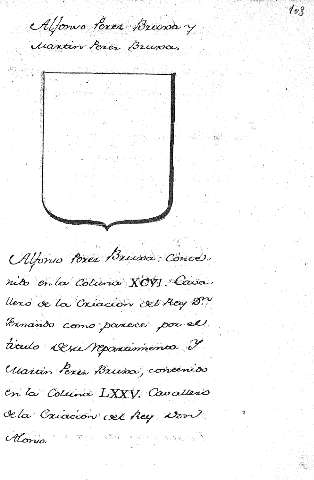 103
Alfonso Perez Bruna y
Martin Perez Bruna.
Alfonso Perez Bruna: Conte-
nido en la Coluna XCVI. Cava-
llero de la Criacion del Rey Dn.
Fernando como parece por el
titulo de su repartimiento Y
Martin Perez Bruna, contenido
en la Coluna LXXV. Cavallero
de la Criacion del Rey Don
Alonso.